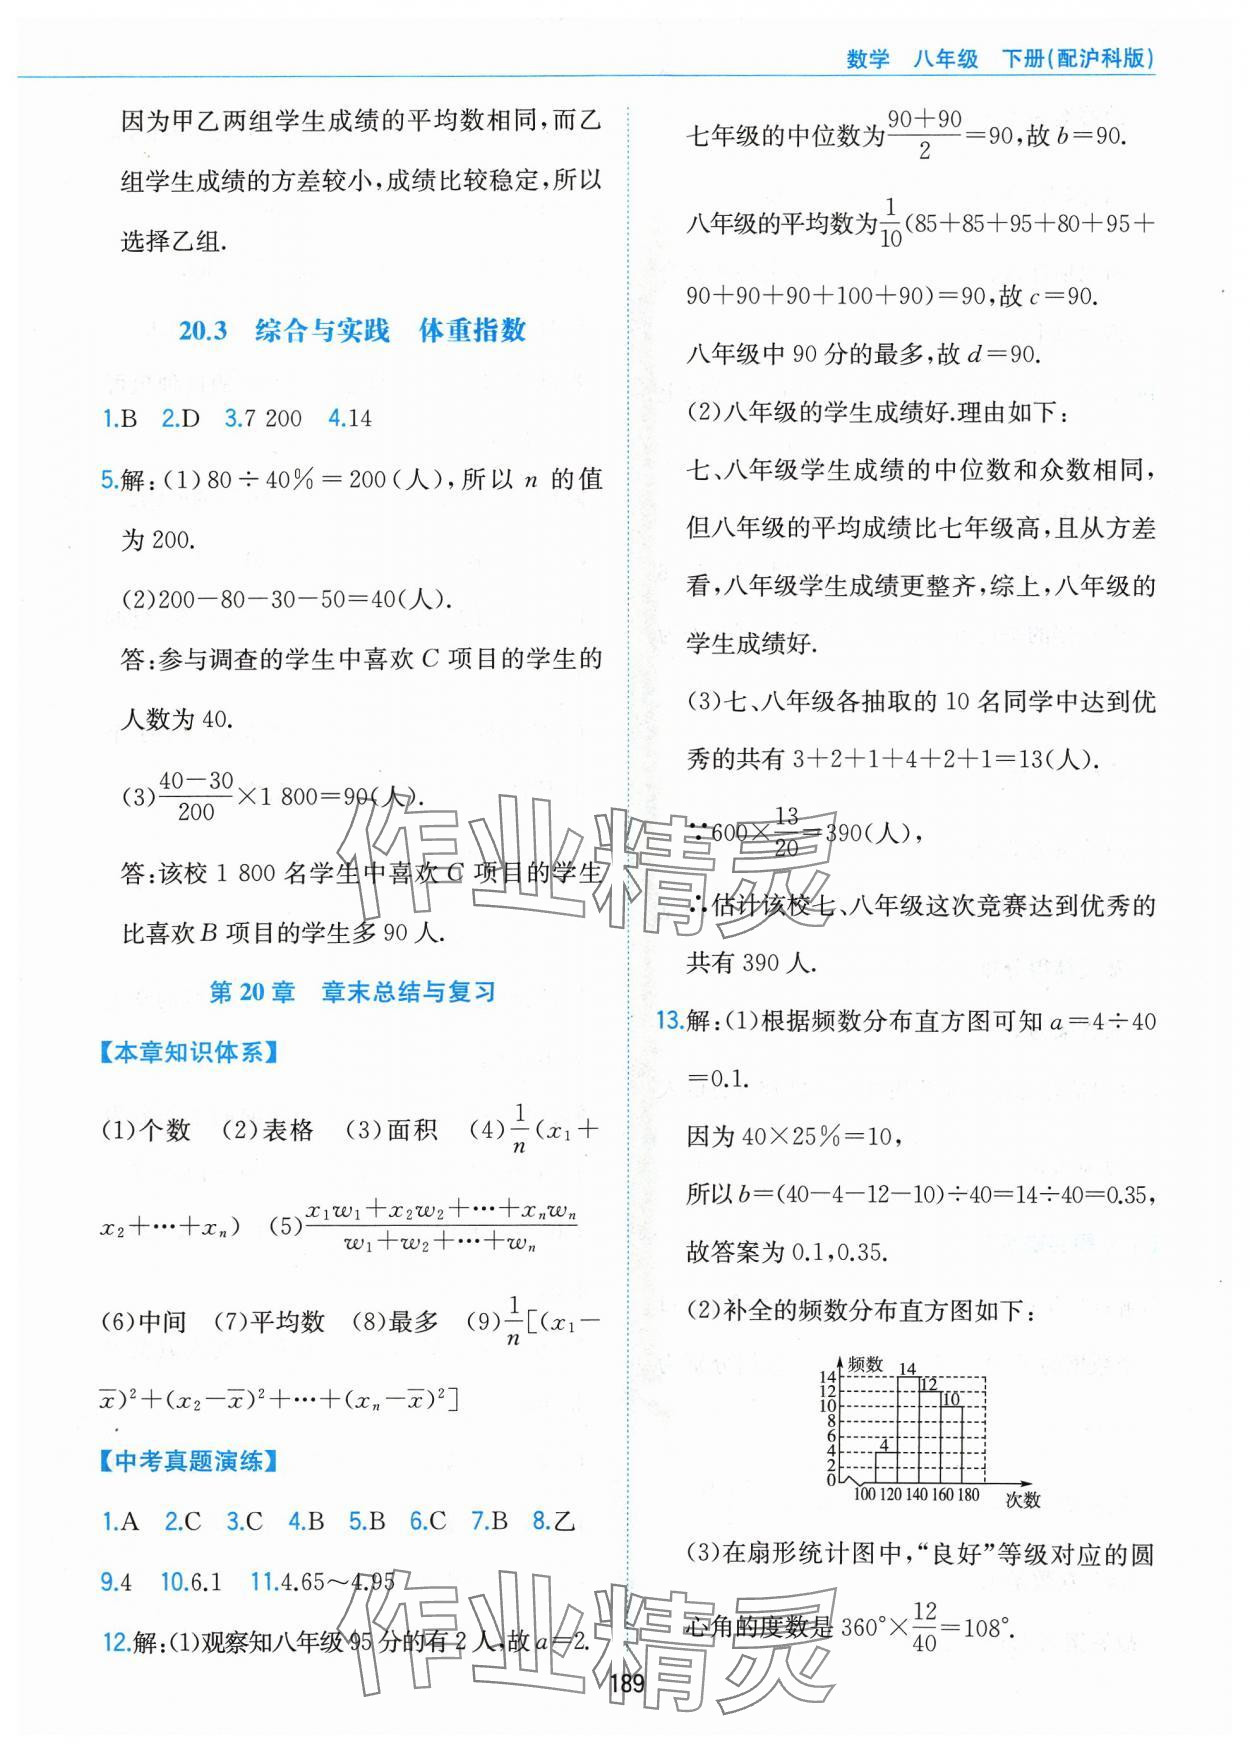 数学 八年级 下册(配沪科版)
因为甲乙两组学生成绩的平均数相同,而乙
组学生成绩的方差较小,成绩比较稳定,所以
选择乙组.
20.3 综合与实践 体重指数
1.B 2.D 3.7 200 4.14
5.解:(1)80÷40%=200(人),所以 n 的值
为 200.
(2)200-80-30-50=40(人).
答:参与调查的学生中喜欢 C 项目的学生的
人数为 40.
(3)\frac{40-30}{200}×1 800=90(人).
答:该校 1 800 名学生中喜欢 C 项目的学生
比喜欢 B 项目的学生多 90 人.
第 20 章 章末总结与复习
【本章知识体系】
(1)个数 (2)表格 (3)面积 (4)\frac{1}{n}(x₁+
x₂+…+xₙ) (5)\frac{x₁w₁+x₂w₂+…+xₙwₙ}{w₁+w₂+…+wₙ}
(6)中间 (7)平均数 (8)最多 (9)\frac{1}{n}[(x₁-
x̅)²+(x₂-x̅)²+…+(xₙ-x̅)²]
【中考真题演练】
1.A 2.C 3.C 4.B 5.B 6.C 7.B 8.乙
9.4 10.6.1 11.4.65～4.95
12.解:(1)观察知八年级 95 分的有 2 人,故 a=2.
七年级的中位数为\frac{90+90}{2}=90,故 b=90.
八年级的平均数为\frac{1}{10}(85+85+95+80+95+
90+90+90+100+90)=90,故 c=90.
八年级中 90 分的最多,故 d=90.
(2)八年级的学生成绩好.理由如下:
七、八年级学生成绩的中位数和众数相同,
但八年级的平均成绩比七年级高,且从方差
看,八年级学生成绩更整齐,综上,八年级的
学生成绩好.
(3)七、八年级各抽取的 10 名同学中达到优
秀的共有 3+2+1+4+2+1=13(人).
∵600×\frac{13}{20}=390(人),
∴估计该校七、八年级这次竞赛达到优秀的
共有 390 人.
13.解:(1)根据频数分布直方图可知 a=4÷40
=0.1.
因为 40×25%=10,
所以 b=(40-4-12-10)÷40=14÷40=0.35,
故答案为 0.1,0.35.
(2)补全的频数分布直方图如下:
频数
14
12
10
8
6
4
2
0
4
14
12
10
100 120 140 160 180
次数
(3)在扇形统计图中,“良好”等级对应的圆
心角的度数是 360°×\frac{12}{40}=108°.
189
作业精灵
作业精灵